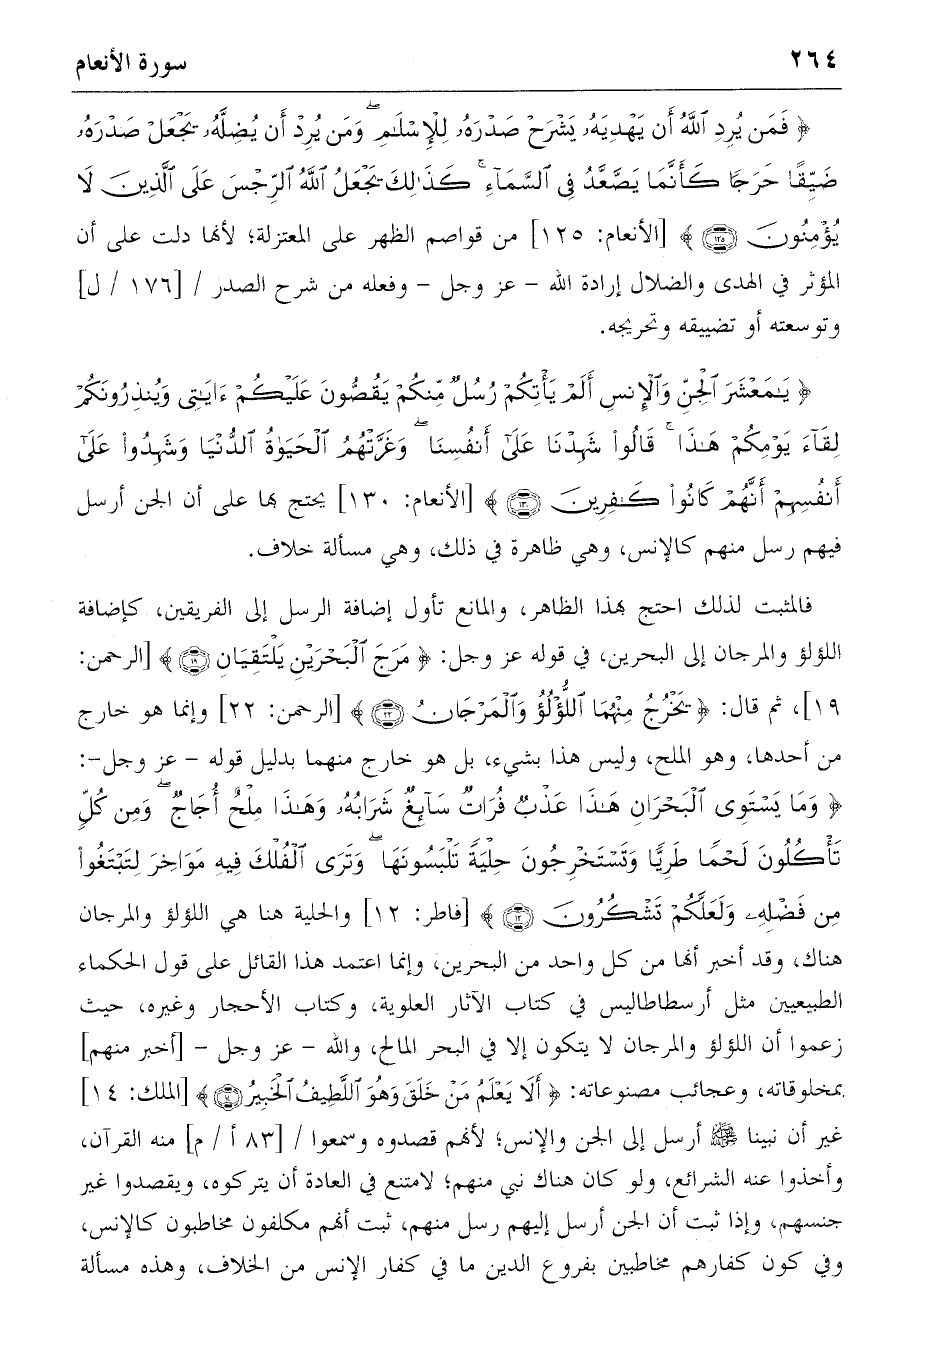 ٢٦٤ سورة الأنعام
﴿ فَمَن يُرِدِ ٱللَّهُ أَن يَهْدِيَهُۥ يَشْرَحْ صَدْرَهُۥ لِلْإِسْلَٰمِ ۖ وَمَن يُرِدْ أَن يُضِلَّهُۥ يَجْعَلْ صَدْرَهُۥ
ضَيِّقًا حَرَجًا كَأَنَّمَا يَصَّعَّدُ فِى ٱلسَّمَآءِ ۚ كَذَٰلِكَ يَجْعَلُ ٱللَّهُ ٱلرِّجْسَ عَلَى ٱلَّذِينَ لَا
يُؤْمِنُونَ ١٢٥ ﴾ [الأنعام: ١٢٥] من قواصم الظهر على المعتزلة؛ لأنها دلت على أن
المؤثر في الهدى والضلال إرادة الله – عز وجل – وفعله من شرح الصدر / [١٧٦ / ل]
وتوسعته أو تضييقه وتحريجه.
﴿ يَٰمَعْشَرَ ٱلْجِنِّ وَٱلْإِنسِ أَلَمْ يَأْتِكُمْ رُسُلٌ مِّنكُمْ يَقُصُّونَ عَلَيْكُمْ ءَايَٰتِى وَيُنذِرُونَكُمْ
لِقَآءَ يَوْمِكُمْ هَٰذَا ۚ قَالُوا۟ شَهِدْنَا عَلَىٰٓ أَنفُسِنَا ۖ وَغَرَّتْهُمُ ٱلْحَيَوٰةُ ٱلدُّنْيَا وَشَهِدُوا۟ عَلَىٰٓ
أَنفُسِهِمْ أَنَّهُمْ كَانُوا۟ كَٰفِرِينَ ١٣٠ ﴾ [الأنعام: ١٣٠] يحتج بها على أن الجن أرسل
فيهم رسل منهم كالإنس، وهي ظاهرة في ذلك، وهي مسألة خلاف.
فالمثبت لذلك احتج بهذا الظاهر، والمانع تأول إضافة الرسل إلى الفريقين، كإضافة
اللؤلؤ والمرجان إلى البحرين، في قوله عز وجل: ﴿ مَرَجَ ٱلْبَحْرَيْنِ يَلْتَقِيَانِ ١٩ ﴾ [الرحمن:
١٩]، ثم قال: ﴿ يَخْرُجُ مِنْهُمَا ٱللُّؤْلُؤُ وَٱلْمَرْجَانُ ٢٢ ﴾ [الرحمن: ٢٢] وإنما هو خارج
من أحدها، وهو الملح، وليس هذا بشيء، بل هو خارج منهما بدليل قوله – عز وجل–:
﴿ وَمَا يَسْتَوِى ٱلْبَحْرَانِ هَٰذَا عَذْبٌ فُرَاتٌ سَآئِغٌ شَرَابُهُۥ وَهَٰذَا مِلْحٌ أُجَاجٌ ۖ وَمِن كُلٍّ
تَأْكُلُونَ لَحْمًا طَرِيًّا وَتَسْتَخْرِجُونَ حِلْيَةً تَلْبَسُونَهَا ۖ وَتَرَى ٱلْفُلْكَ فِيهِ مَوَاخِرَ لِتَبْتَغُوا۟
مِن فَضْلِهِۦ وَلَعَلَّكُمْ تَشْكُرُونَ ١٢ ﴾ [فاطر: ١٢] والحلية هنا هي اللؤلؤ والمرجان
هناك، وقد أخبر أنها من كل واحد من البحرين، وإنما اعتمد هذا القائل على قول الحكماء
الطبيعيين مثل أرسطاطاليس في كتاب الآثار العلوية، وكتاب الأحجار وغيره، حيث
زعموا أن اللؤلؤ والمرجان لا يتكون إلا في البحر المالح، والله – عز وجل – [أخبر منهم]
بمخلوقاته، وعجائب مصنوعاته: ﴿ أَلَا يَعْلَمُ مَنْ خَلَقَ وَهُوَ ٱللَّطِيفُ ٱلْخَبِيرُ ١٤ ﴾ [الملك: ١٤]
غير أن نبينا ﷺ أرسل إلى الجن والإنس؛ لأنهم قصدوه وسمعوا / [٨٣ أ / م] منه القرآن،
وأخذوا عنه الشرائع، ولو كان هناك نبي منهم؛ لامتنع في العادة أن يتركوه، ويقصدوا غير
جنسهم، وإذا ثبت أن الجن أرسل إليهم رسل منهم، ثبت أنهم مكلفون مخاطبون كالإنس،
وفي كون كفارهم مخاطبين بفروع الدين ما في كفار الإنس من الخلاف، وهذه مسألة